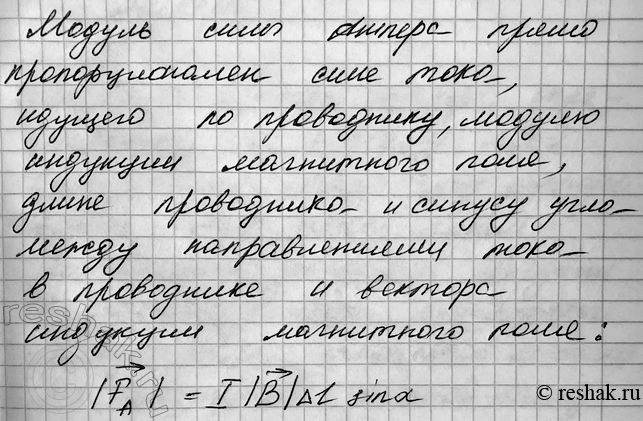 Модуль силы Ампера прямо
пропорционален силе тока,
идущего по проводнику, модулю
индукции магнитного поля,
длине проводника и синусу угла
между направлениями тока
в проводнике и вектора
индукции магнитного поля:
|F⃗_A| = I |B⃗| Δl sin α
reshak.ru
© reshak.ru